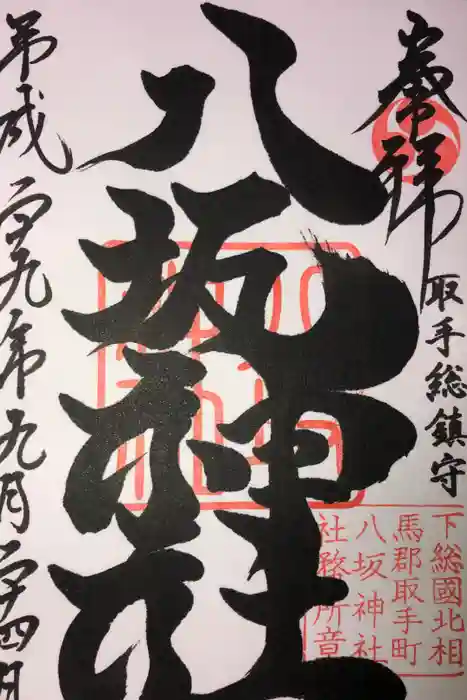 奉拝
取手総鎮守
八坂神社
下総國北相
馬郡取手町
八坂神社
社務所章
平成二十九年九月二十四日